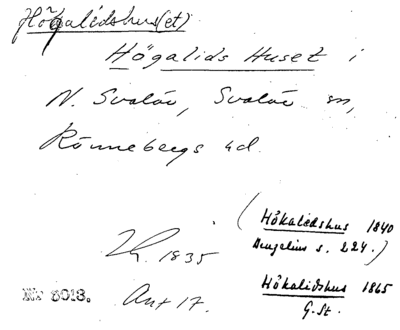 Högalidshus(et)
Högalids Huset i
N. Svalöv, Svalöv sn,
Rönnebergs hd.
(Hökalidshus 1840
Djurgelius s. 224.)
1835
Hökalidshus 1865
G. St.
Nr 8018.
Avt 17.